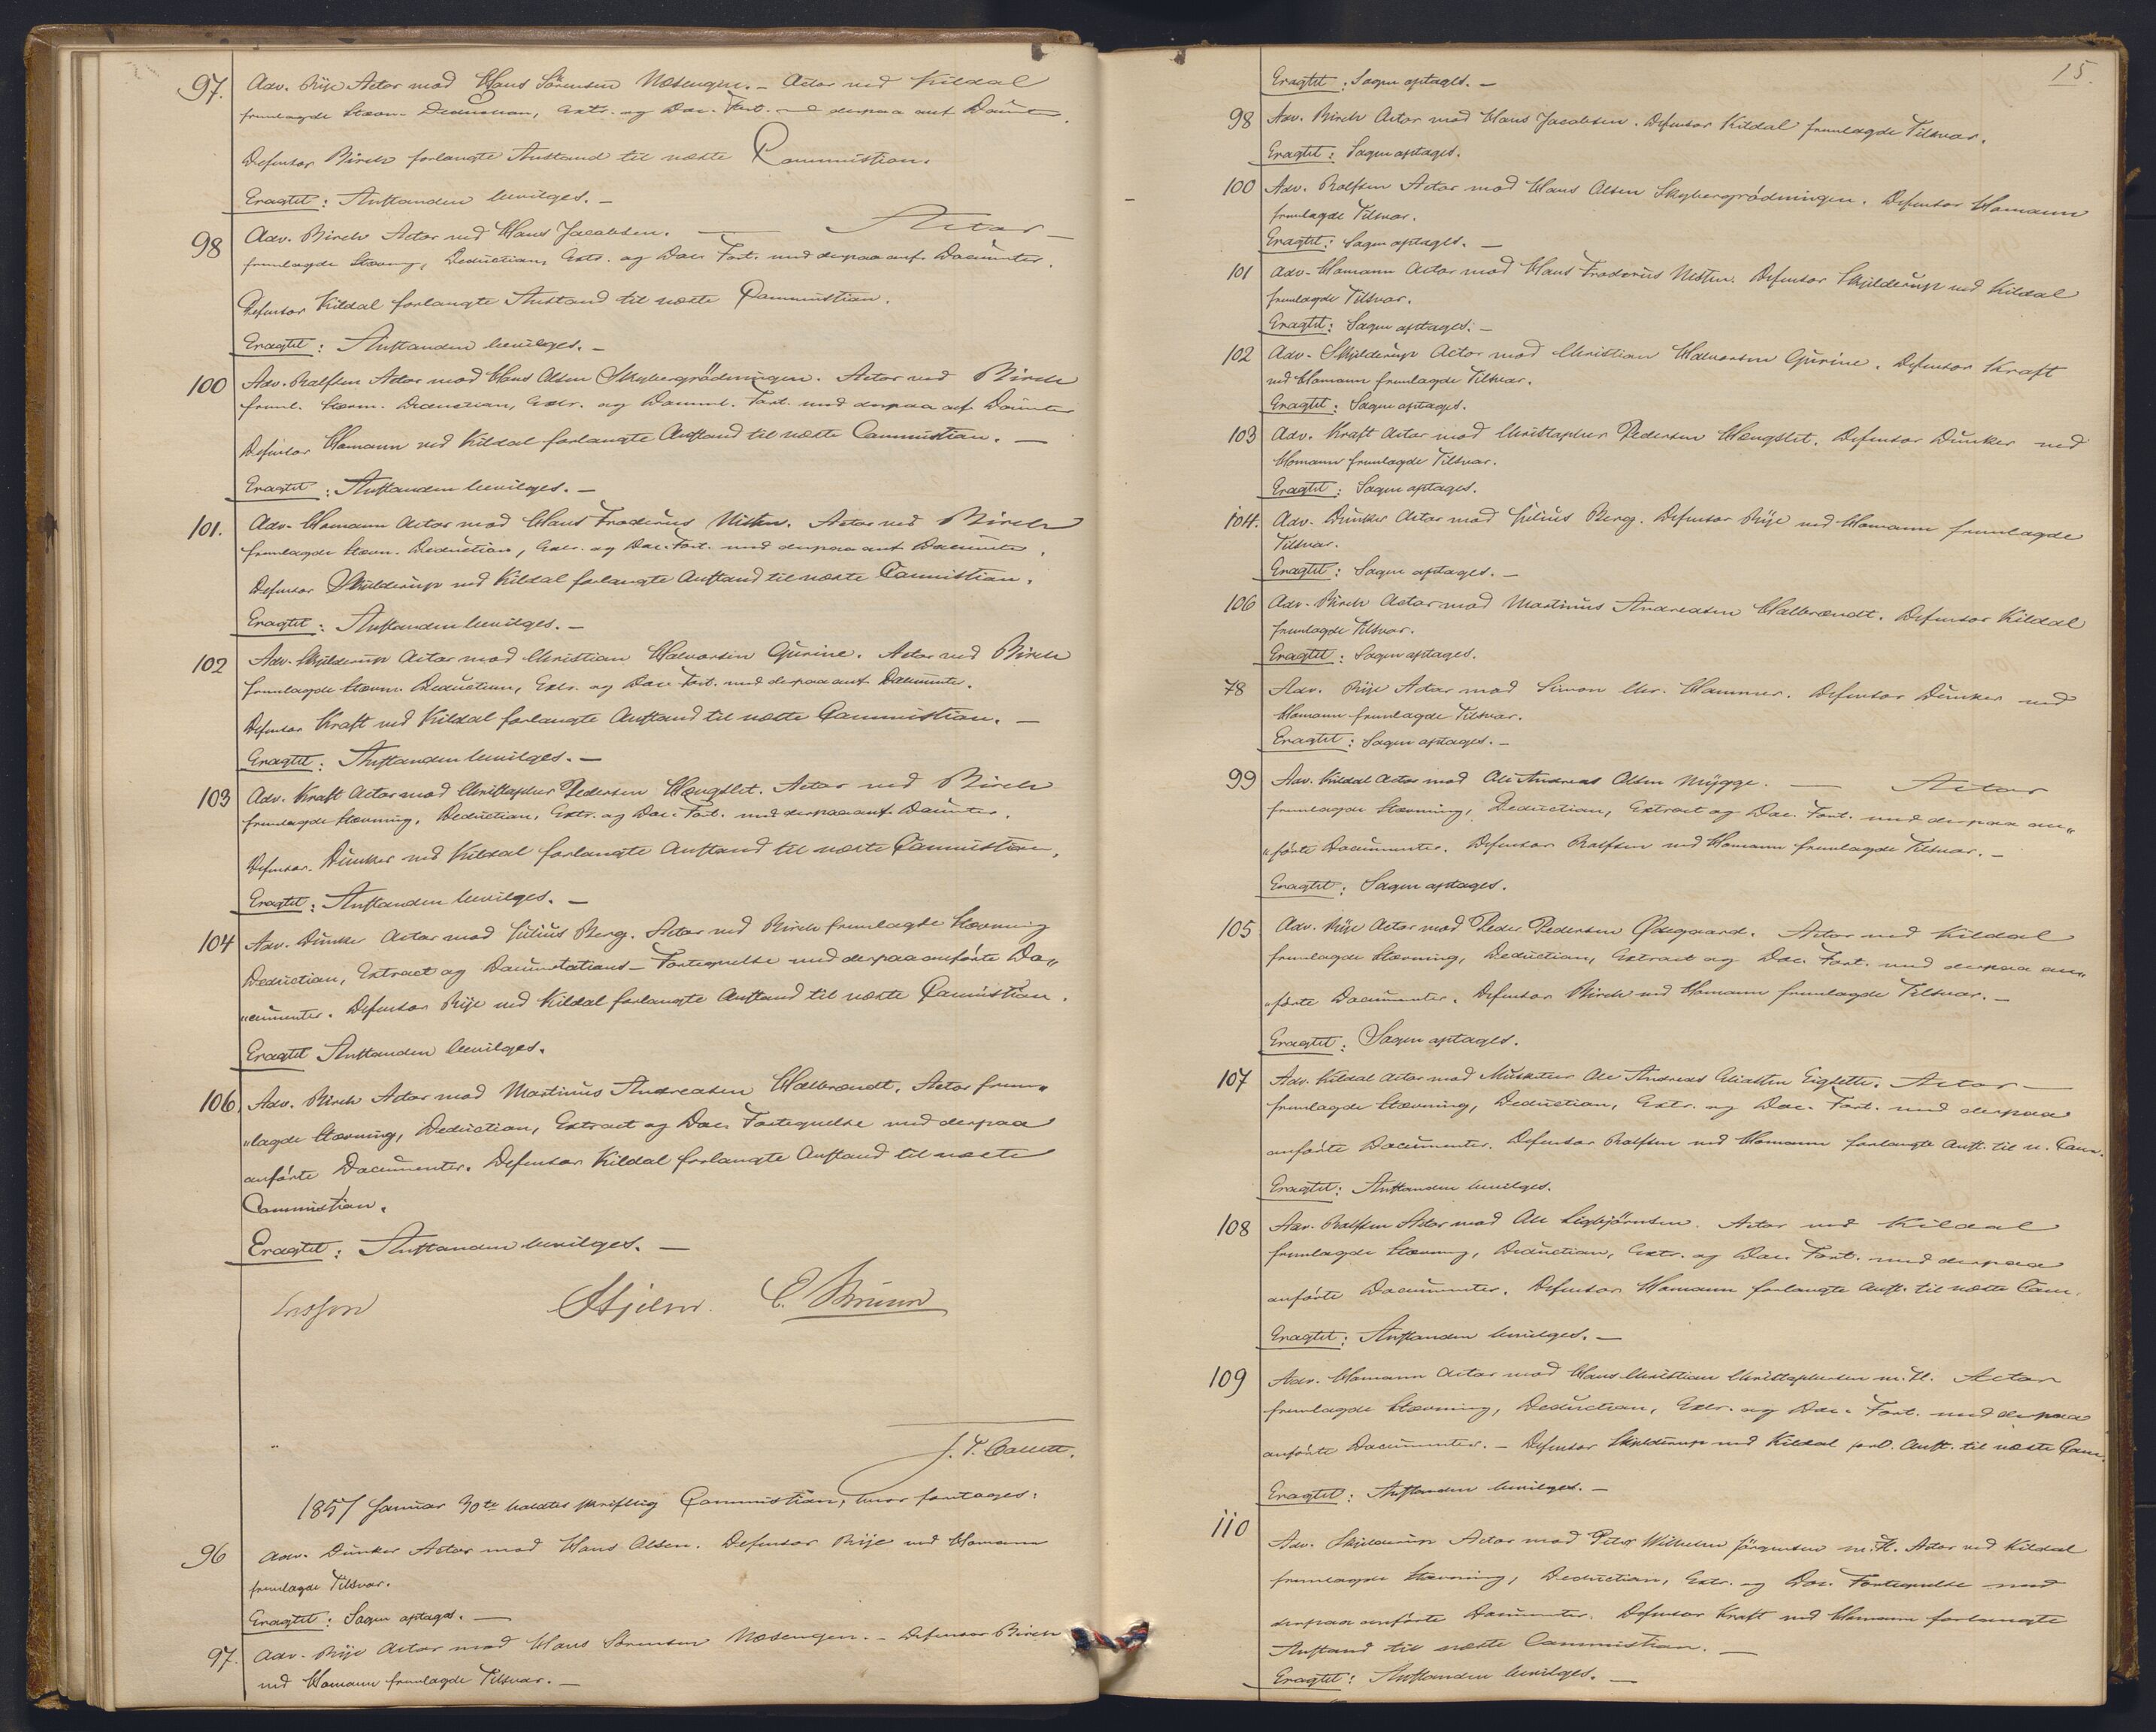 97. Adv. Rije Actor mod Hans Sörensen Næsengen. – Actor ved Kildal
fremlagde Stævn. Deduction, Extr. og Doc. Fort. med derpaa anf. Documter.
Defensor Birch forlangte Anstand til næste Commission.
Eragtet: Anstanden bevilges. –
98 Adv. Birch Actor mod Hans Jacobsen. — Actor –
fremlagde Stævng, Deduction, Extr. og Doc. Fort. med derpaa anf. Documenter.
Defensor Kildal forlangte Anstand til næste Commission.
Eragtet: Anstanden bevilges. –
100 Adv. Rolfsen Actor mod Hans Olsen Skybergrödningen. Actor ved Birch
freml. Stævn. Deduction, Extr. og Docum. Fort. med derpaa anf. Documter
Defensor Homann ved Kildal forlangte Anstand til næste Commission. –
Eragtet: Anstanden bevilges. –
101. Adv. Homann Actor mod Hans Froderus Actor ved Birch
fremlagde Stævn. Deduction, Extr. og Doc. Fort. med derpaa anf. Documenter.
Defensor Skjelderup ved Kildal forlangte Anstand til næste Commission.
Eragtet: Anstanden bevilges. –
102 Adv. Skjelderup Actor mod Christian Halvorsen Gurine. Actor ved Birch
fremlagde Stævn. Deduction, Extr. og Doc. Fort. med derpaa anf. Documenter.
Defensor Kraft ved Kildal forlangte Anstand til næste Commission. –
Eragtet: Anstanden bevilges. –
103 Adv. Kraft Actor mod Christopher Pedersen Hængslet. Actor ved Birch
fremlagde Stævning, Deduction, Extr. og Doc. Fort. med derpaa anf. Documter.
Defensor Dunker ved Kildal forlangte Anstand til næste Commission.
Eragtet: Anstanden bevilges. –
104 Adv. Dunker Actor mod Julius Berg. Actor ved Birch fremlagde Stævning
Deduction, Extract og Documtations-Fortegnelse med derpaa anförte Do„
„cumenter. Defensor Rije ved Kildal forlangte Anstand til næste Commission.
Eragtet Anstanden bevilges.
106 Adv. Birch Actor mod Martinus Andreasen Halbrændt. Actor frem„
„lagde Stævning, Deduction, Extract og Doc. Fortegnelse med derpaa
anförte Documenter. Defensor Kildal forlangte Anstand til næste
Commission.
Eragtet: Anstanden bevilges. –
Lasson Hjelm. C. Bruun
J. P. Collett.
1857 Januar 30te holdtes skriftlig Commission, hvor foretages:
96 Adv. Dunker Actor mod Hans Olsen. Defensor Rije ved Homann
fremlagde Tilsvar.
Eragtet: Sagen optages. –
97. Adv. Rije Actor mod Hans Sörensen Næsengen. – Defensor Birch
ved Homann fremlagde Tilsvar. –
15.
Eragtet: Sagen optages. –
98 Adv. Birch Actor mod Hans Jacobsen. Defensor Kildal fremlagde Tilsvar.
Eragtet: Sagen optages.
100 Adv. Rolfsen Actor mod Hans Olsen Skybergrödningen. Defensor Homann
fremlagde Tilsvar.
Eragtet: Sagen optages. –
101 Adv. Homann Actor mod Hans Froderus Defensor Skjelderup ved Kildal
fremlagde Tilsvar.
Eragtet: Sagen optages. –
102 Adv. Skjelderup Actor mod Christian Halvorsen Gurine. Defensor Kraft
ved Homann fremlagde Tilsvar.
Eragtet: Sagen optages.
103 Adv. Kraft Actor mod Christopher Pedersen Hængslet. Defensor Dunker ved
Homann fremlagde Tilsvar.
Eragtet: Sagen optages.
104. Adv. Dunker Actor mod Julius Berg. Defensor Rije ved Homann fremlagde
Tilsvar.
Eragtet: Sagen optages. –
106 Adv. Birch Actor mod Martinus Andreasen Halbrændt. Defensor Kildal
fremlagde Tilsvar.
Eragtet: Sagen optages.
78 Adv. Rije Actor mod Simon Chr. Hammer. Defensor Dunker ved
Homann fremlagde Tilsvar.
Eragtet: Sagen optages. –
99 Adv. Kildal Actor mod Ole Andreas Olsen Mygge. — Actor
fremlagde Stævning, Deduction, Extract og Doc. Fort. med derpaa an„
„förte Documenter. Defensor Rolfsen ved Homann fremlagde Tilsvar. –
Eragtet: Sagen optages.
105 Adv. Rije Actor mod Peder Pedersen Ødegaard. Actor ved Kildal
fremlagde Stævning, Deduction, Extract og Doc. Fort. med derpaa an„
„förte Documenter. Defensor Birch ved Homann fremlagde Tilsvar. –
Eragtet: Sagen optages.
107 Adv. Kildal Actor mod Musketeer Ole Andreas Eliassen Actor –
fremlagde Stævning, Deduction, Extr. og Doc. Fort. med derpaa
anförte Documenter. Defensor Rolfsen ved Homann forlangte Anst. til n. Com.
Eragtet: Anstanden bevilges.
108 Adv. Rolfsen Actor mod Ole Sigbjörnsen. Actor ved Kildal
fremlagde Stævning, Deduction, Extr. og Doc. Fort. med derpaa
anförte Documenter. Defensor Homann forlangte Anst. til næste Com.
Eragtet: Anstanden bevilges. –
109 Adv. Homann Actor mod Hans Christian Christophersen m. Fl. Actor
fremlagde Stævning, Deduction, Extr. og Doc. Fort. med derpaa
anförte Documenter. – Defensor Skjelderup ved Kildal forl. Anst. til næste Com.
Eragtet: Anstanden bevilges. –
110 Adv. Skjelderup Actor mod Peter Wilhelm Jörgensen m. Fl. Actor ved Kildal
fremlagde Stævning, Deduction, Extr. og Doc. Fortegnelse med
derpaa anförte Documenter. Defensor Kraft ved Homann forlangte
Anstand til næste Commission. –
Eragtet: Anstanden bevilges. –